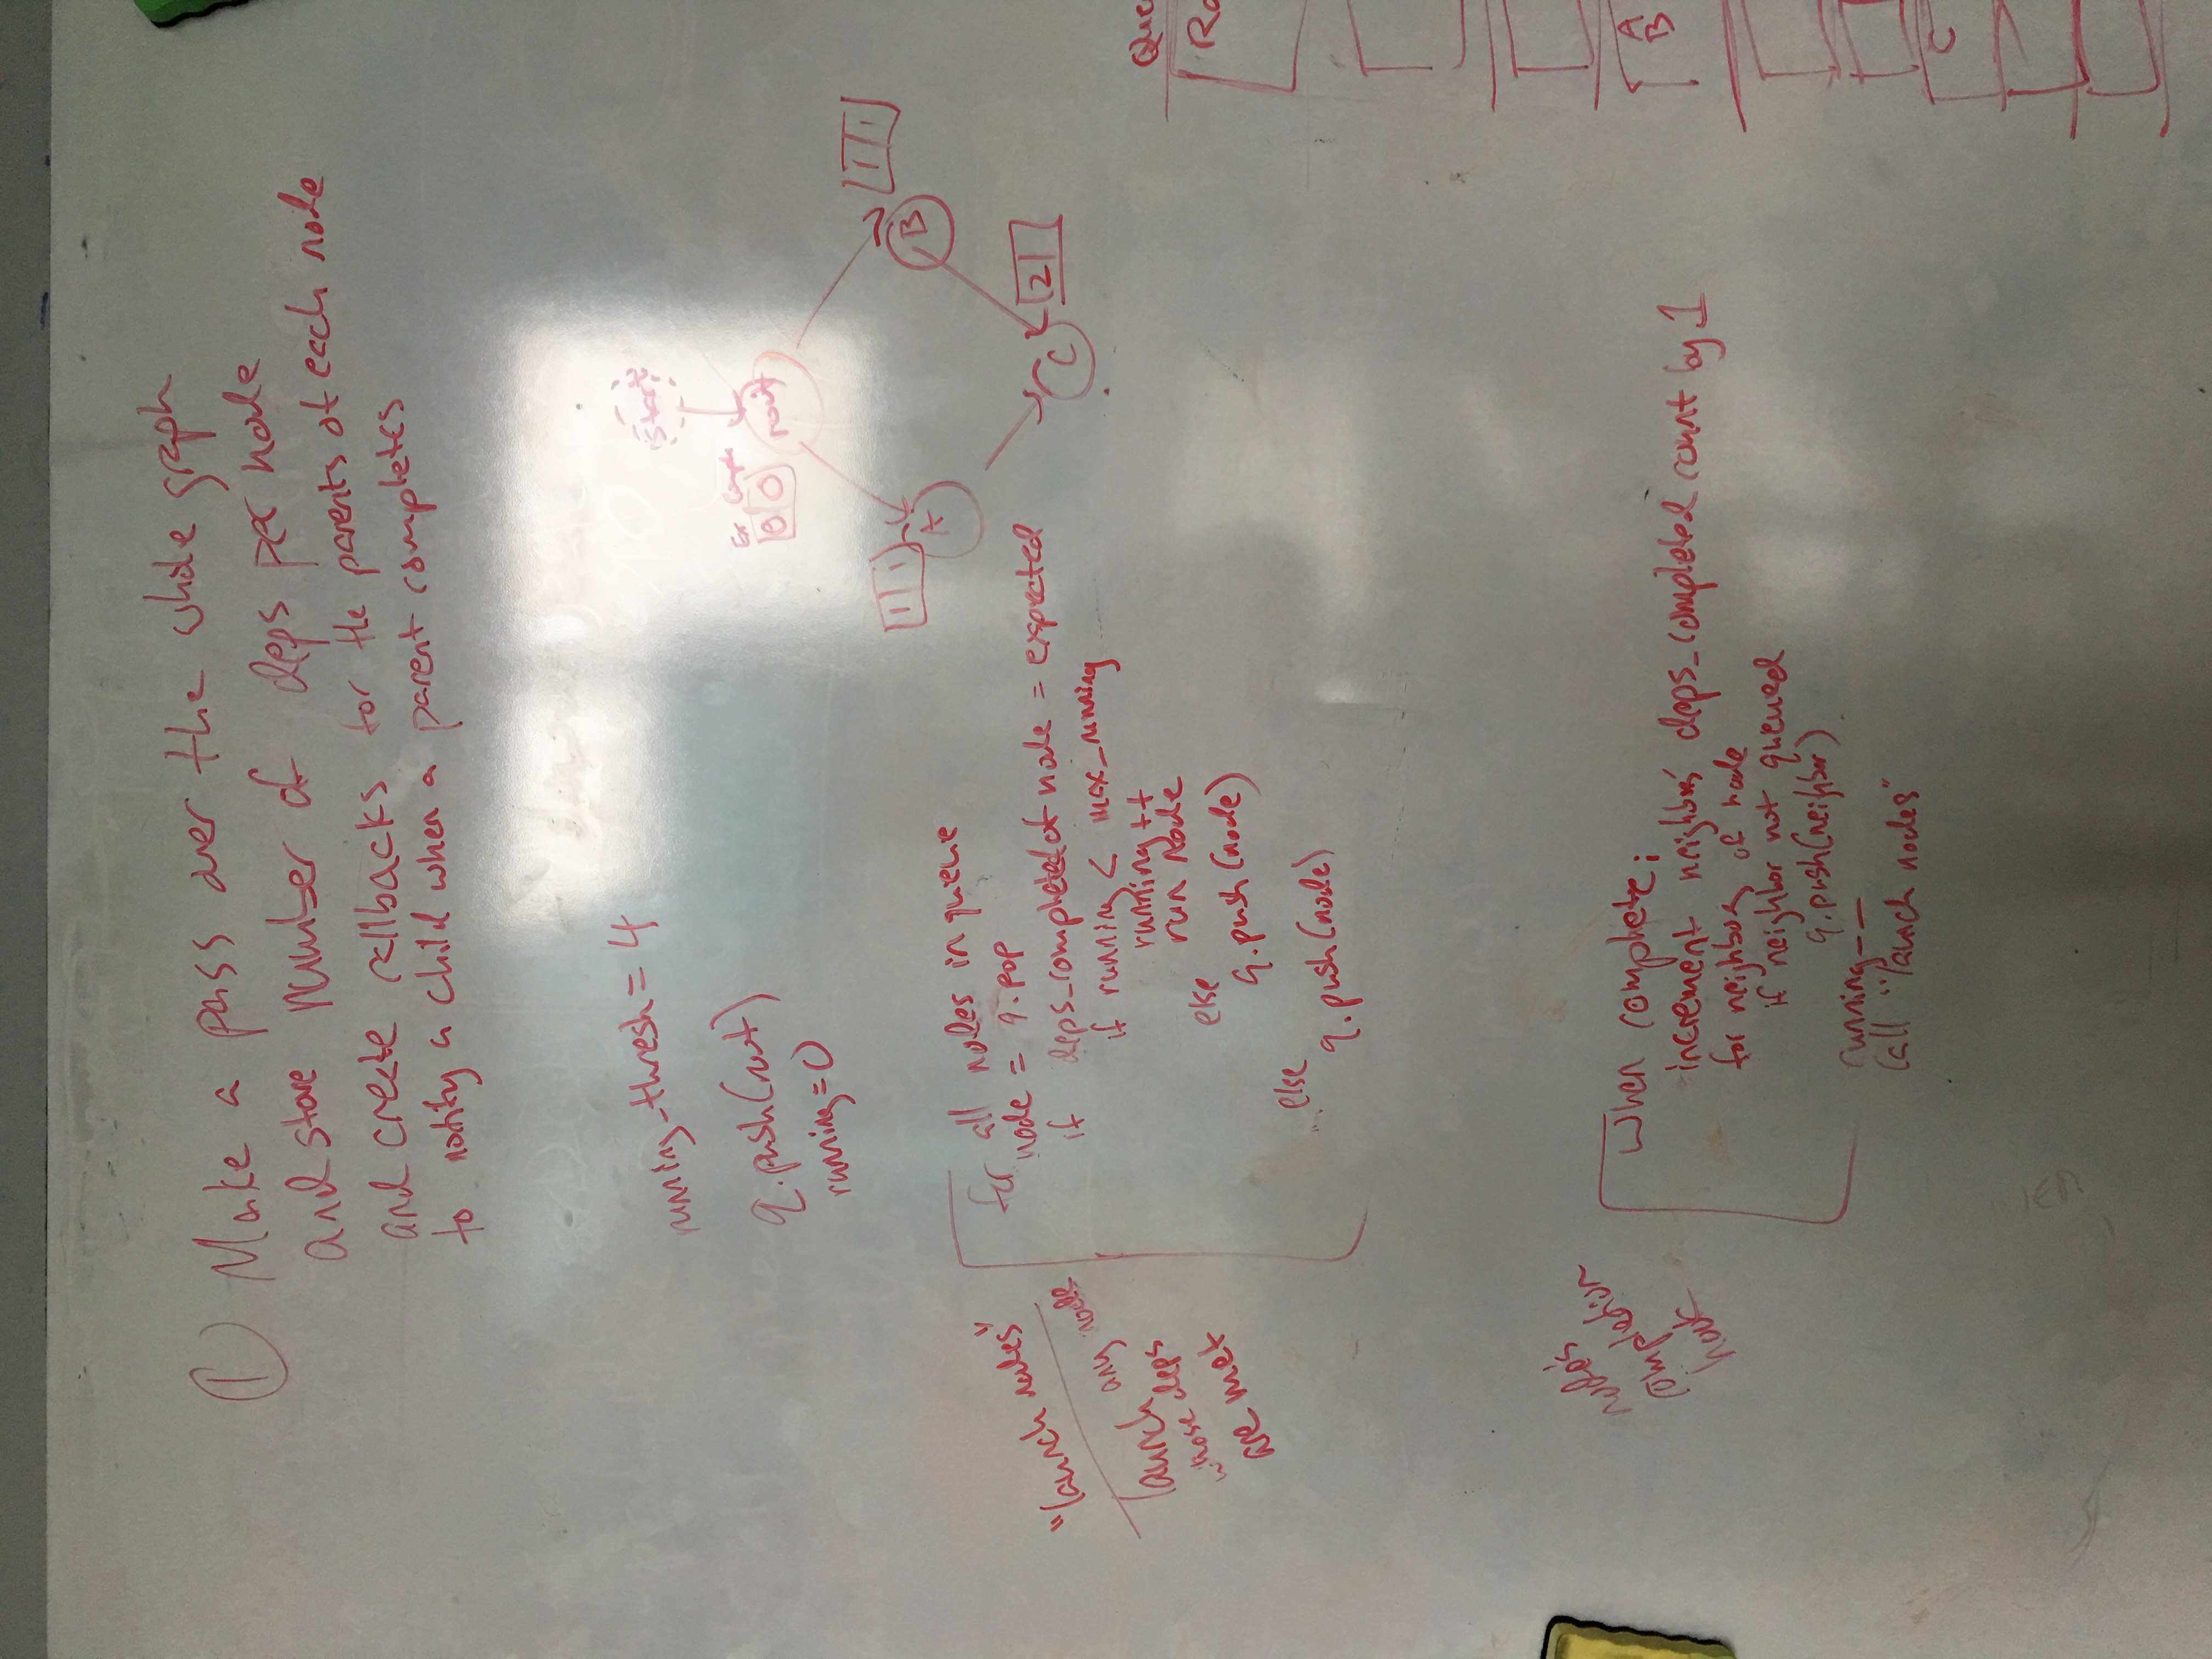 ① Make a pass over the whole graph
and store number of deps per node
and create callbacks for the parents of each node
to notify a child when a parent completes
running_thresh = 4
q.push(root)
running = 0
start
Ex Comple
0 0
root
1 1
A
1 1
B
C
2
"launch nodes"
launch any node
whose deps
are met
for all nodes in queue
node = q.pop
if deps_completed of node = expected
if running < max_running
running++
run node
else
q.push(node)
else
q.push(node)
node's
completion
hook
when complete:
increment neighbors' deps_completed count by 1
for neighbors of node
if neighbor not queued
q.push(neighbor)
running--
call "launch nodes"
Que
Ro
A
B
C